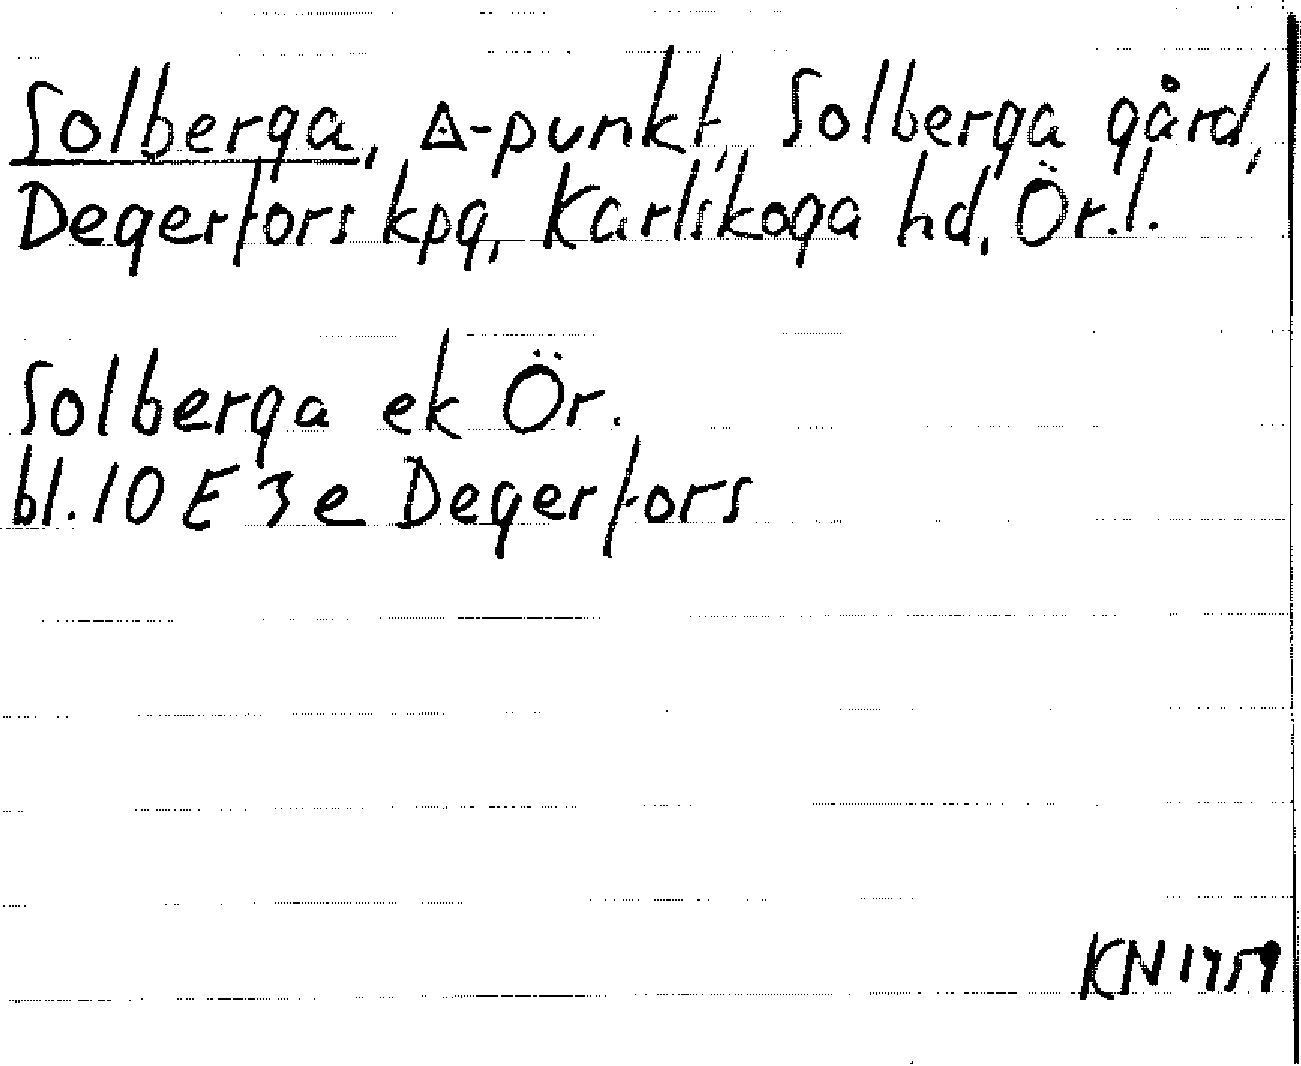 Solberga, △-punkt, Solberga gård,
Degerfors kpg, Karlskoga hd, Ör.l.
Solberga ek Ör.
bl. 10 E 3 e Degerfors
KN